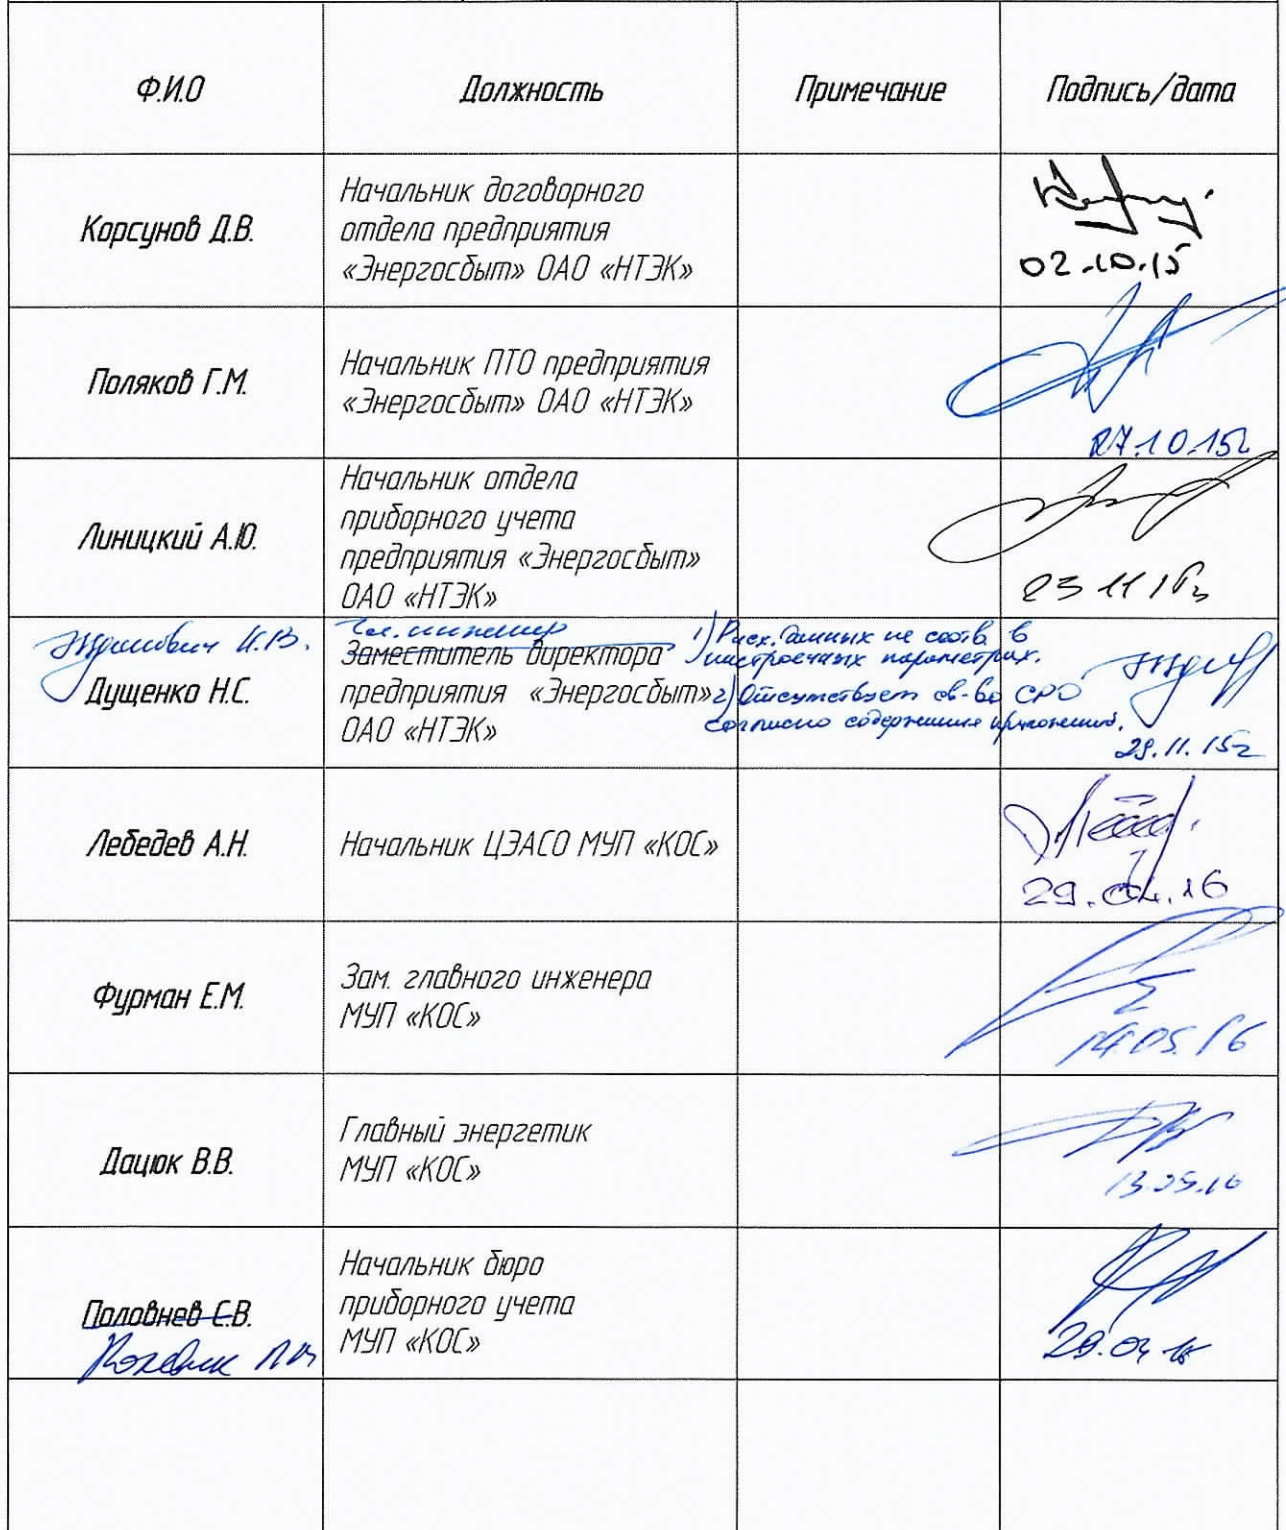 Ф.И.О
Должность
Примечание
Подпись/дата
Корсунов Д.В.
Начальник договорного
отдела предприятия
«Энергосбыт» ОАО «НТЭК»
02.10.15
Поляков Г.М.
Начальник ПТО предприятия
«Энергосбыт» ОАО «НТЭК»
27.10.15г
Линицкий А.Ю.
Начальник отдела
приборного учета
предприятия «Энергосбыт»
ОАО «НТЭК»
23 11 15г
И.В.
Дущенко Н.С.
Гл. инженер
Заместитель директора
предприятия «Энергосбыт»
ОАО «НТЭК»
1) Расх. данных не соотв. в
настроечных параметрах.
2) Отсутствует св-во СРО
согласно содержания приложений.
29.11.15г
Лебедев А.Н.
Начальник ЦЭАСО МУП «КОС»
29.04.16
Фурман Е.М.
Зам. главного инженера
МУП «КОС»
05.16
Дацюк В.В.
Главный энергетик
МУП «КОС»
13.05.16
Половнев С.В.
Начальник бюро
приборного учета
МУП «КОС»
29.04.16